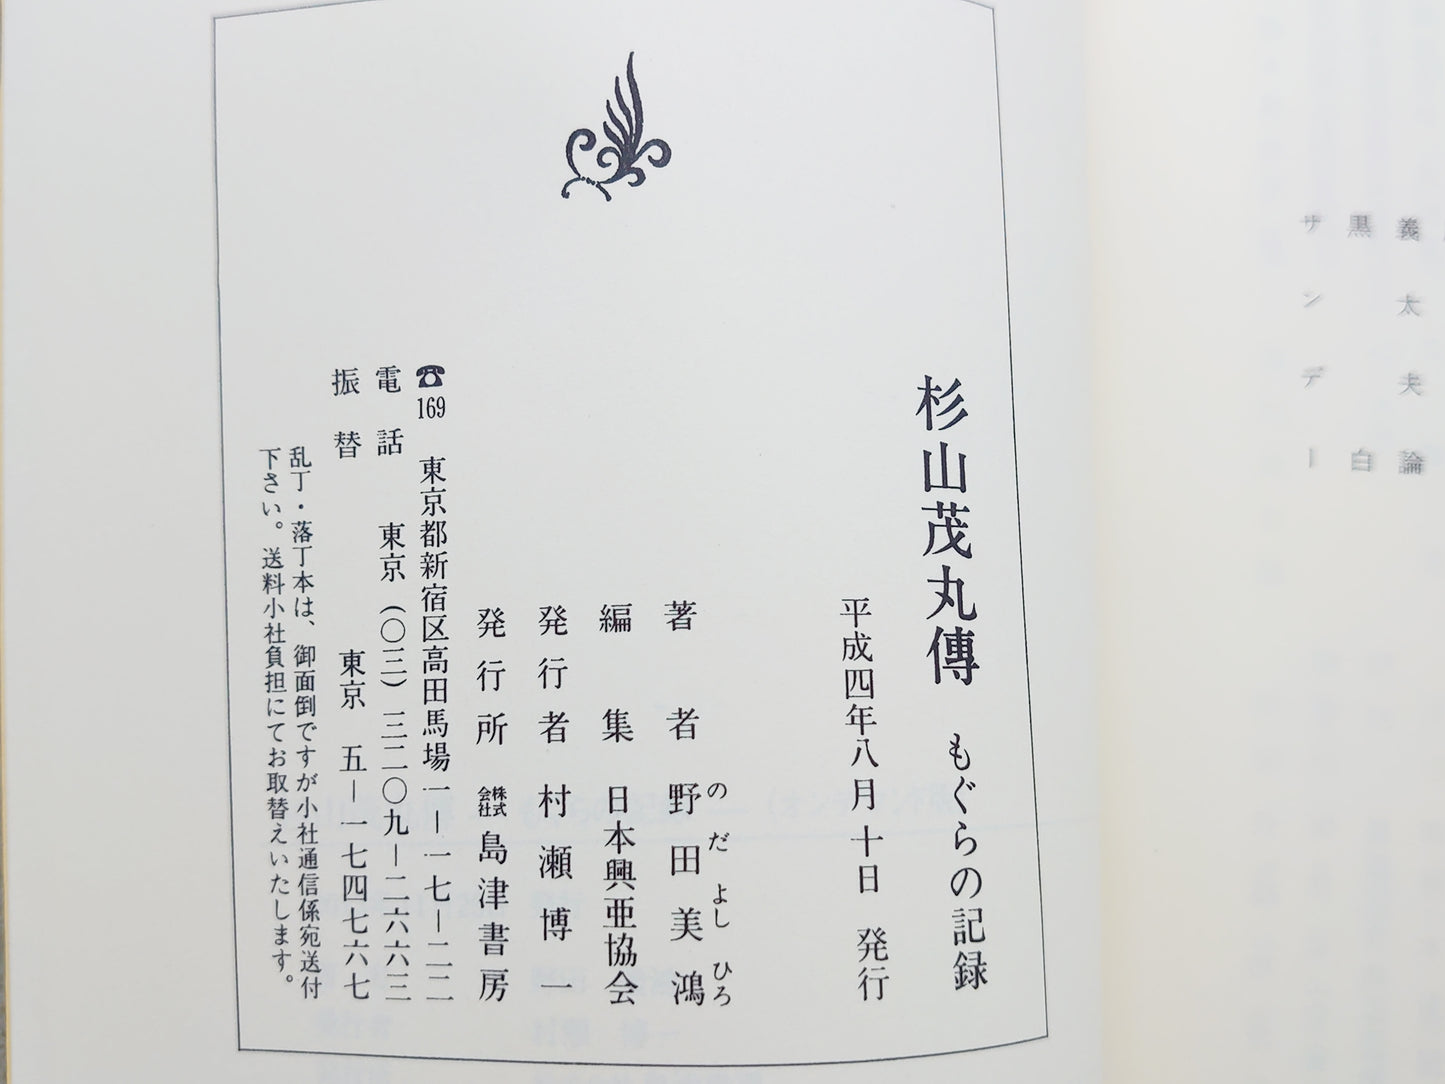 義太夫論
黒白
サンデー
杉山茂丸傳 もぐらの記録
平成四年八月十日 発行
のだ よしひろ
著者 野田美鴻
編集 日本興亜協会
発行者 村瀬博一
発行所 株式会社 島津書房
☎169 東京都新宿区高田馬場一―一七―二二
電話 東京(〇三)三二〇九―二六六三
振替 東京 五―一七四七六七
乱丁・落丁本は、御面倒ですが小社通信係宛送付
下さい。送料小社負担にてお取替えいたします。